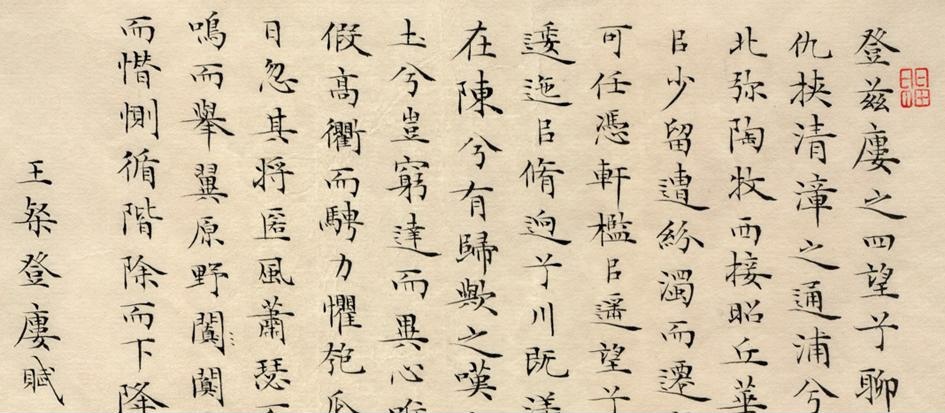 登茲廔之四望兮聊
仇挾清漳之通浦兮
北弥陶牧西接昭丘華
㠯少留遭紛濁而遷
可任憑軒檻㠯遥望兮
逶迤㠯脩迥兮川既漾
在陳兮有歸歟之嘆
土兮豈窮達而異心惟
假高衢而騁力懼匏瓜
日忽其将匿風蕭瑟而
鳴而舉翼原野闃闃
而憯惻循階除而下降
王粲登廔賦